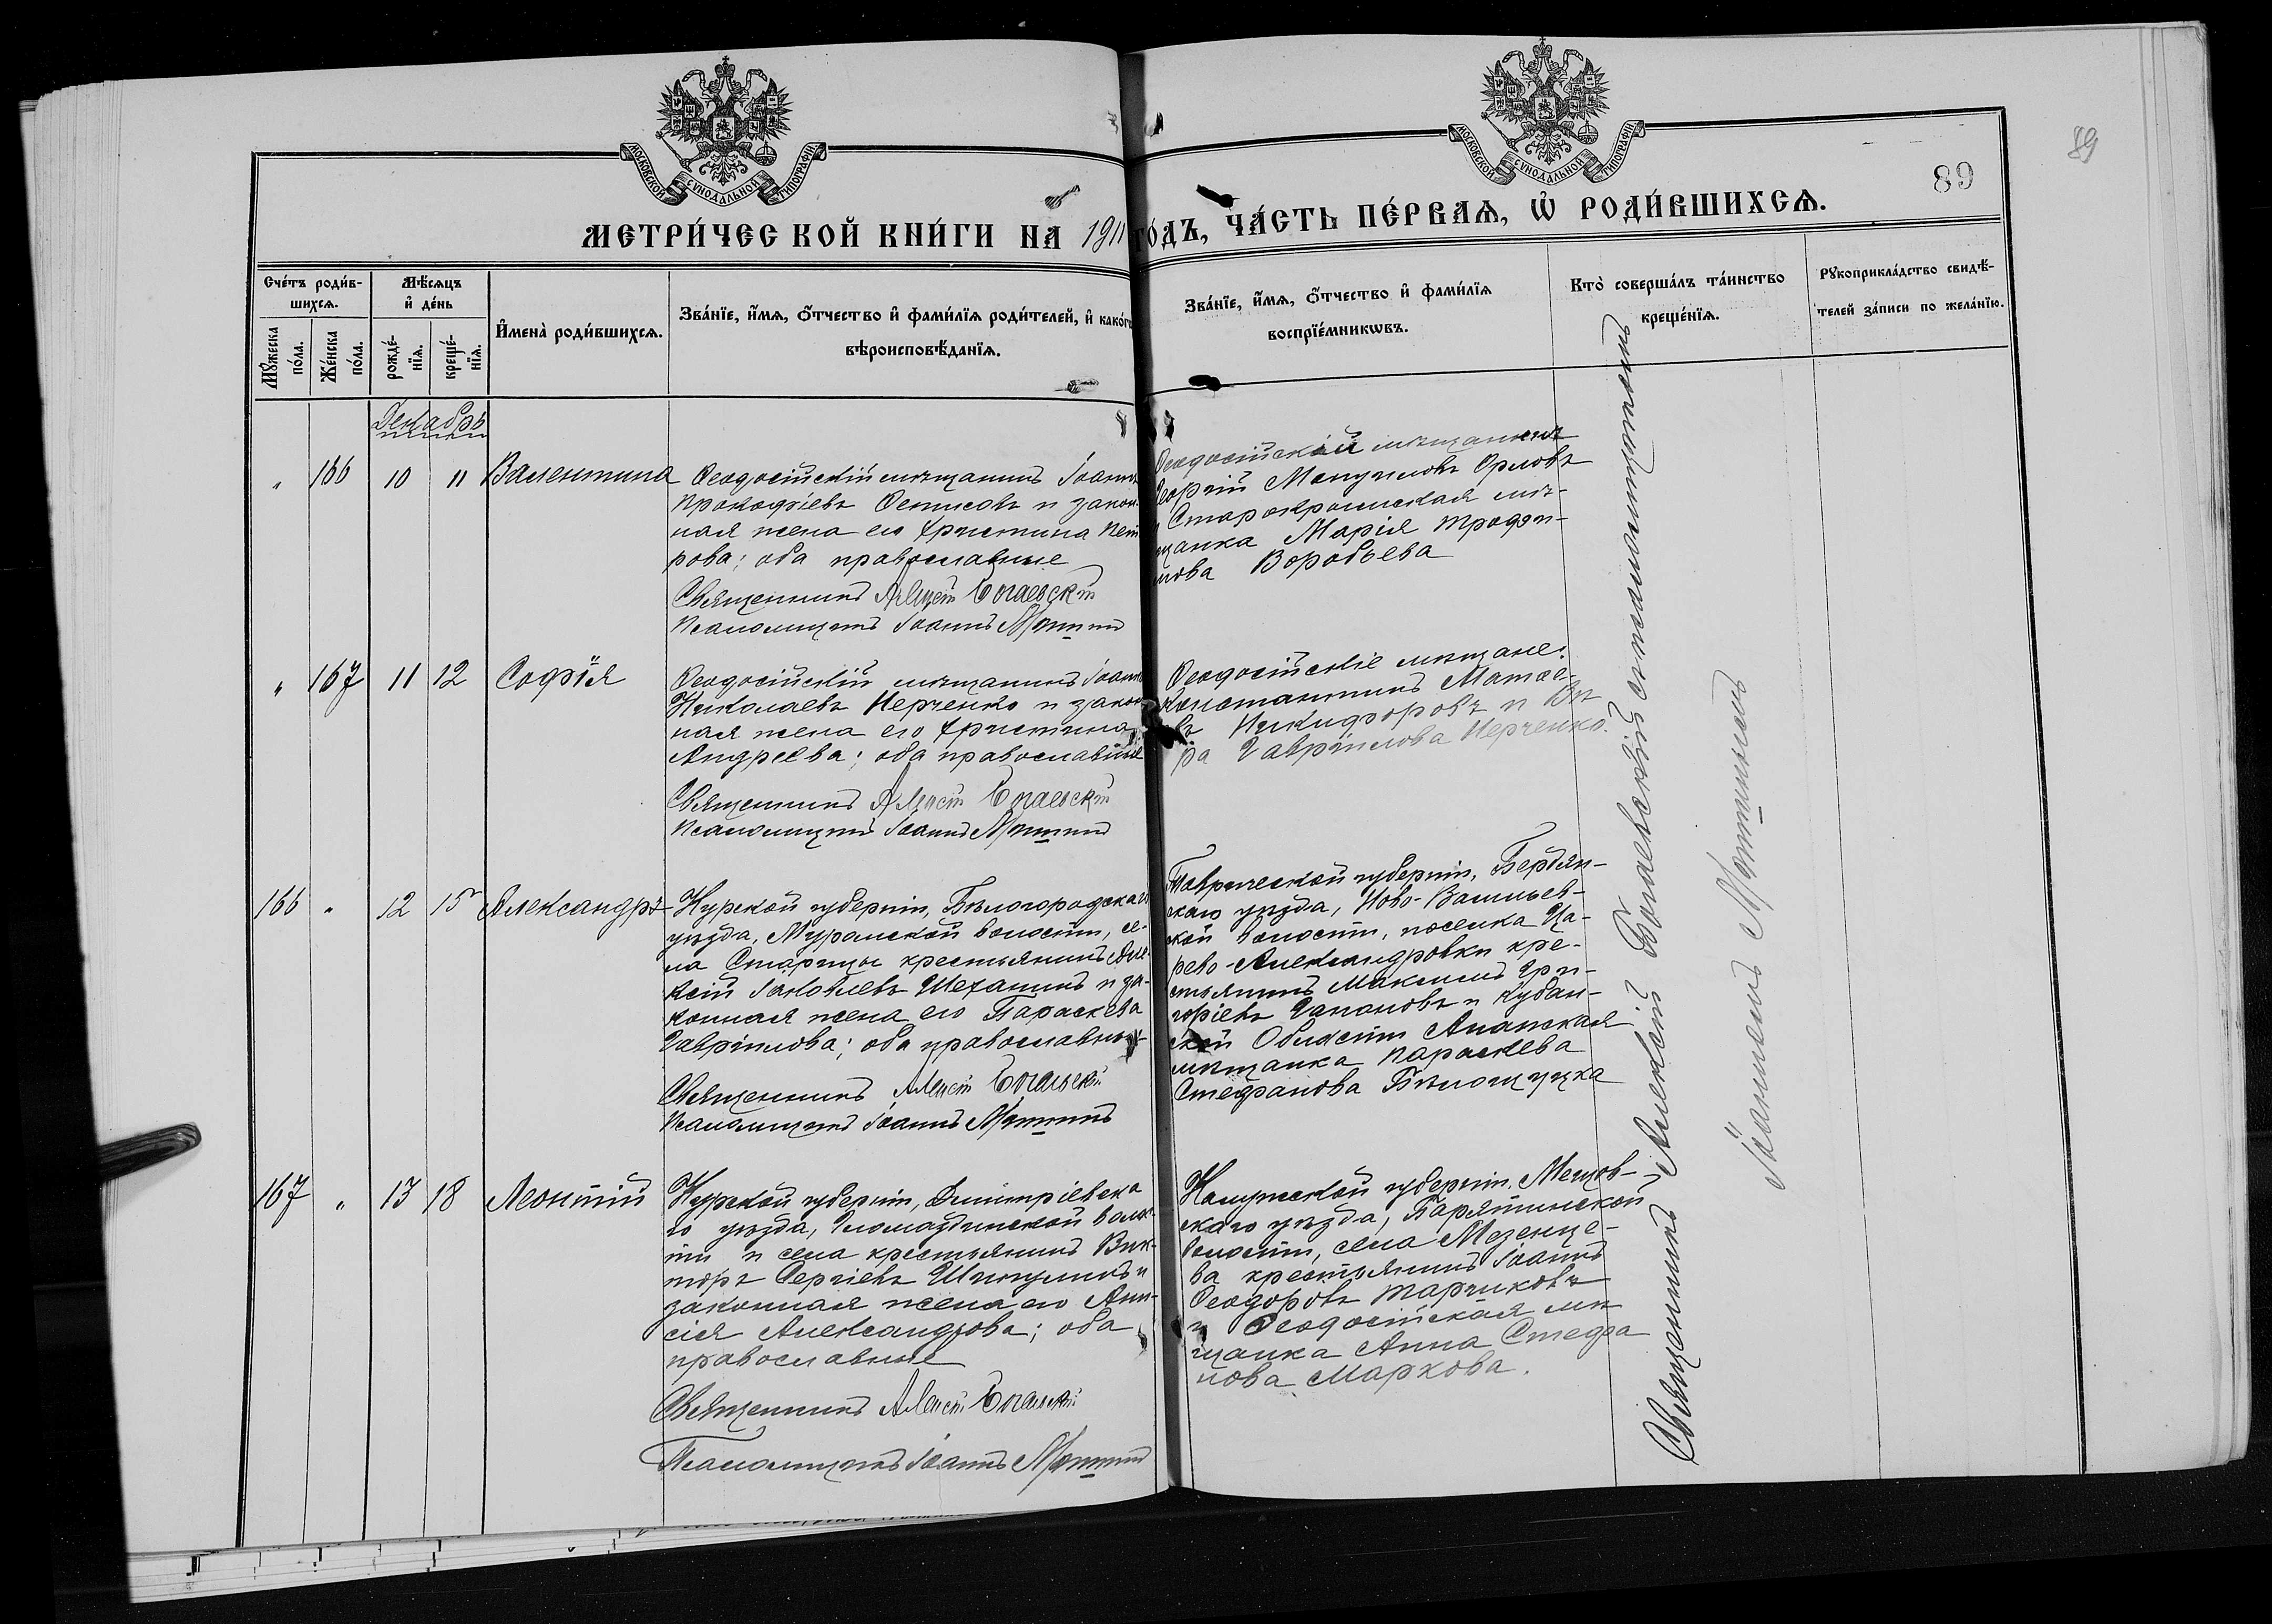 МОСКОВСКОЙ СѴНОДАЛЬНОЙ ТИПОГРАФІИ
МОСКОВСКОЙ СѴНОДАЛЬНОЙ ТИПОГРАФІИ
89
89
МЕТРИ́ЧЕСКОЙ КНИ́ГИ НА 1911 ГО́ДЪ, ЧА́СТЬ ПЕ́РВАѦ, Ѡ҆ РОДИ́ВШИХСѦ.
Сче́тъ роди́в-
шихсѧ.
Мꙋ́жеска
по́ла.
Же́нска
по́ла.
Мѣ́сѧцъ
и҆ де́нь
рожде́-
нїѧ.
креще́-
нїѧ.
И҆мена̀ роди́вшихсѧ.
Зва́нїе, и҆́мѧ, ѻ҆́тчество и҆ фами́лїѧ роди́телей, и҆ како́гѡ
вѣроисповѣ́данїѧ.
Зва́нїе, и҆́мѧ, ѻ҆́тчество и҆ фами́лїѧ
воспрїе́мникѡвъ.
Кто̀ соверша́лъ та́инство
креще́нїѧ.
Рꙋкоприкла́дство свидѣ́-
телей за́писи по жела́нїю.
Декабрь
" 166 10 11 Валентина
Ѳеодосійскій мѣщанинъ Іоаннъ
Прокофіевъ Денисовъ и закон-
ная жена его Христина Пет
рова; оба православные
Священникъ Алексій Богаевскій
Псаломщикъ Іоаннъ
Ѳеодосійскій мѣщанинъ
Георгій Мануиловъ Орловъ
и Старокрымская мѣ-
щанка Марія Трофи-
мова Воробьева
" 167 11 12 Софія
Ѳеодосійскій мѣщанинъ Іоаннъ
Николаевъ Перченко и закон
ная жена его Христина
Андреева; оба православные
Священникъ Алексій Богаевскій
Псаломщикъ Іоаннъ
Ѳеодосійскіе мѣщане:
Константинъ Матѳе-
въ Никифоровъ и Вѣ
ра Гавріилова Перченко.
166 " 12 15 Александръ
Курской губерніи, Бѣлогородскаго
уѣзда, Муромской волости, се-
ла Старицы крестьянинъ Але-
ксій Іаковлевъ Шеханинъ и за-
конная жена его Параскева
Гавріилова; оба православные
Священникъ Алексій Богаевскій
Псаломщикъ Іоаннъ
Таврической губерніи, Бердян-
скаго уѣзда, Ново-Васильев-
ской волости, поселка Ца-
рево-Александровки кре-
стьянинъ Максимъ Гри-
горіевъ Гапоновъ и Кубан-
ской Области Анапская
мѣщанка Параскева
Стефанова
167 " 13 18 Леонтій
Курской губерніи, Димитріевска
го уѣзда, Гломаздинской волос-
ти и села крестьянинъ Вик-
торъ Сергіевъ и
законная жена его Ани-
сія Александрова; оба
православные
Священникъ Алексій Богаевскій
Псаломщикъ Іоаннъ
Калужской губерніи, Мещов-
скаго уѣзда, Парятинской
волости, села Мезенце-
ва крестьянинъ Іоаннъ
Ѳеодоровъ Таричковъ
и Ѳеодосійская мѣ
щанка Анна Стефа
нова Маркова.
Священникъ Алексій Богаевскій съ псаломщикомъ
Іоанномъ